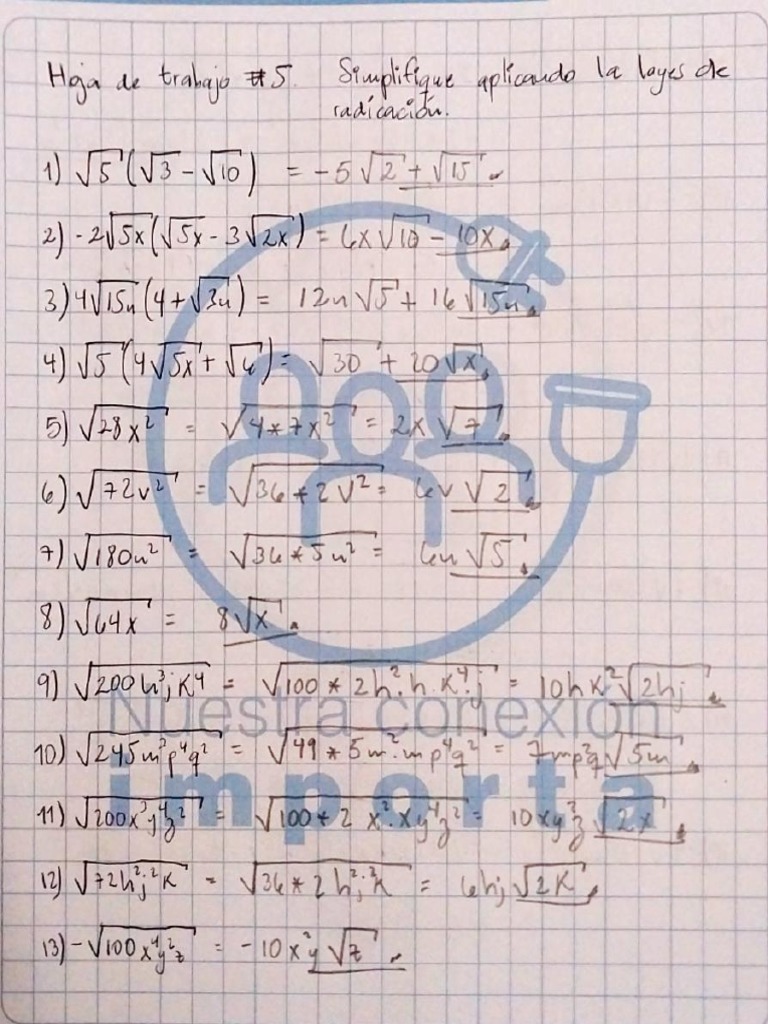 Hoja de trabajo #5. Simplifique aplicando la leyes de
radicación.
1) √5 (√3 - √10) = -5√2 + √15
2) -2√5x (√5x - 3√2x) = 6x√10 - 10x
3) 4√15n (4 + √3n) = 12n√5 + 16√15n
4) √5 (4√5x + √6) = √30 + 20√x
5) √28x² = √4*7x² = 2x√7
6) √72v² = √36*2v² = 6v√2
7) √180n² = √36*5n² = 6n√5
8) √64x = 8√x
9) √200h³jK⁴ = √100*2h²·h·K⁴·j = 10hK²√2hj
10) √245m³p⁴q² = √49*5m²·mp⁴q² = 7mp²q√5m
11) √200x³y⁴z² = √100*2x²·xy⁴z² = 10xy²z√2x
12) √72h²j²K = √36*2h²j²K = 6hj√2K
13) -√100x⁴y²z = -10x²y√z
Nuestra conexión
importa